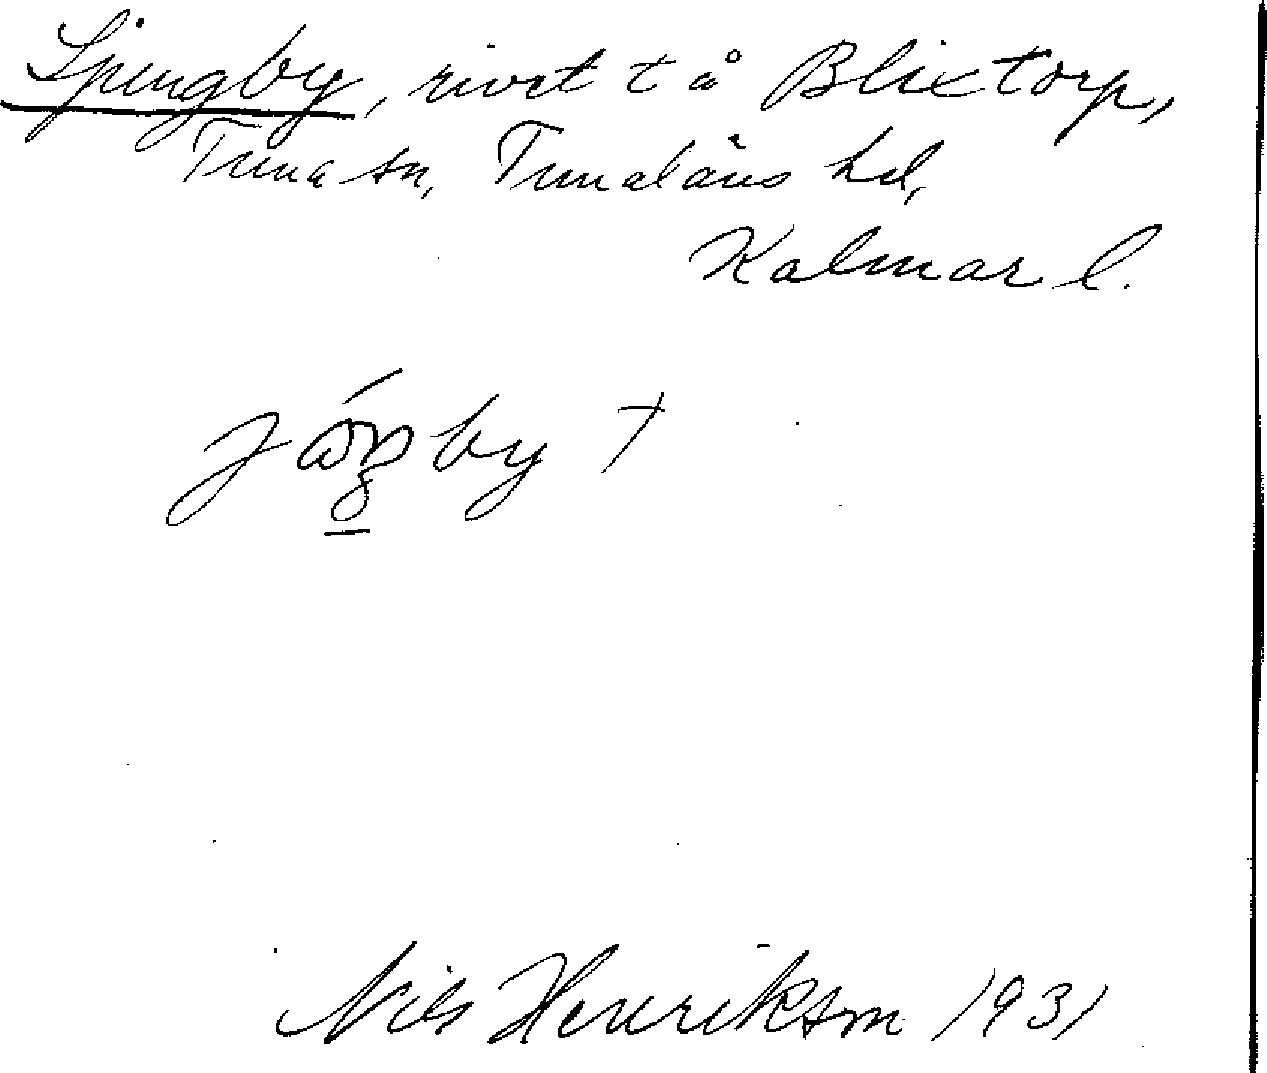 Ljungby, rivet t å Blixtorp,
Tuna sn, Tunaläns hd,
Kalmar l.
Nils Henrikson 1931